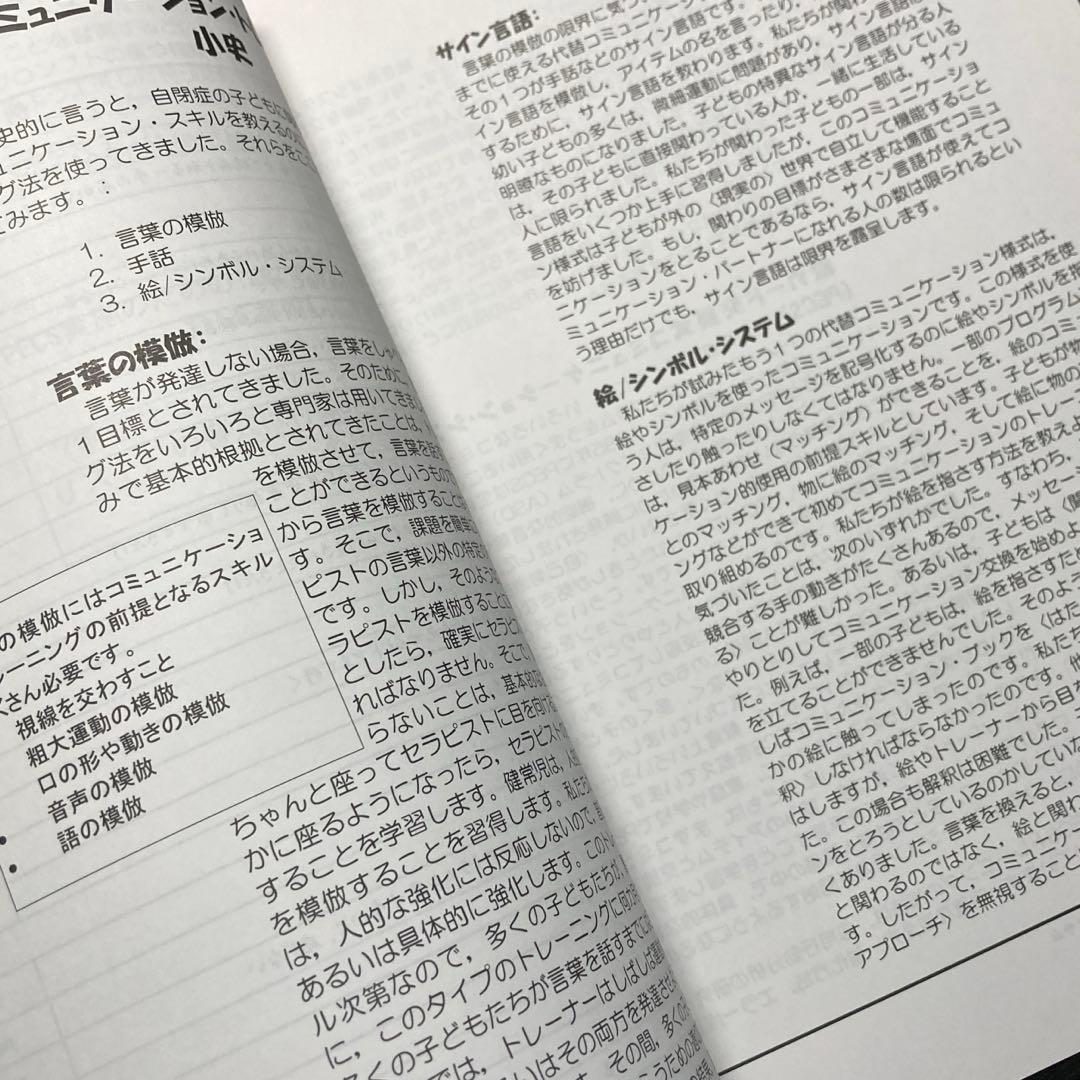 ミュニケーション・ト
小史
史的に言うと，自閉症の子どもに
ュニケーション・スキルを教えるの
グ法を使ってきました。それらをこ
てみます。：
1. 言葉の模倣
2. 手話
3. 絵/シンボル・システム
言葉の模倣：
言葉が発達しない場合，言葉をし
1目標とされてきました。そのために
グ法をいろいろと専門家は用いてきま
みで基本的根拠とされてきたことは，
を模倣させて，言葉を
ことができるというもの
から言葉を模倣すること
す。そこで，課題を簡単
ピストの言葉以外の特定
です。しかし，そのような
ラピストを模倣すること
としたら，確実にセラピ
ればなりません。そこで
らないことは，基本的な
の模倣にはコミュニケーショ
レーニングの前提となるスキル
くさん必要です。
視線を交わすこと
粗大運動の模倣
口の形や動きの模倣
• 音声の模倣
• 語の模倣
ちゃんと座ってセラピストに目を向ける
かに座るようになったら，セラピスト
することを学習します。健常児は，人
を模倣することを習得します。私た
は，人的な強化には反応しないので，
あるいは具体的に強化します。このト
ル次第なので，多くの子どもたちが，
に，このタイプのトレーニングに何
くの子どもたちが言葉を話すまでに
では，トレーナーはしばしば運
いはその両方を発達させ
す。その間，多くの
うための
サイン言語：
言葉の模倣の限界に気づ
までに使える代替コミュニケーション
その1つが手話などのサイン言語です。
イン言語を模倣し，アイテムの名を言ったり，
するために，サイン言語を教わります。私たちが関わ
幼い子どもの多くは，微細運動に問題があり，サイン言語は
明瞭なものになりました。子どもの特異なサイン言語が分る人
は，その子どもに直接関わっている人か，一緒に生活している
人に限られました。私たちが関わった子どもの一部は，サイン
言語をいくつか上手に習得しましたが，このコミュニケーショ
ン様式は子どもが外の〈現実の〉世界で自立して機能すること
を妨げました。もし，関わりの目標がさまざまな場面でコミュ
ニケーションをとることであるなら，サイン言語が使えてコ
ミュニケーション・パートナーになれる人の数は限られるとい
う理由だけでも，サイン言語は限界を露呈します。
絵/シンボル・システム
私たちが試みたもう1つの代替コミュニケーション様式は，
絵やシンボルを使ったコミュニケーションです。この様式を使
う人は，特定のメッセージを記号化するのに絵やシンボルを指
さしたり触ったりしなくてはなりません。一部のプログラム
は，見本あわせ（マッチング）ができることを，絵のコミュニ
ケーション的使用の前提スキルとしています。子どもが物
とのマッチング，物に絵のマッチング，そして絵に物の
ングなどができて初めてコミュニケーションのトレー
取り組めるのです。私たちが絵を指さす方法を教えよ
気づいたことは，次のいずれかでした。すなわち，
競合する手の動きがたくさんあるので，メッセー
る〉ことが難しかった。あるいは，子どもは〈関
やりとりしてコミュニケーション交換を始めよ
た。例えば，一部の子どもは，絵を指さすた
を立てることができませんでした。そのよう
しばコミュニケーション・ブックを〈はた
かの絵に触ってしまったのです。私た
釈〉しなければならなかったのです。他
はしますが，絵やトレーナーから目を
た。この場合も解釈は困難でした。
ンをとろうとしているのかしていな
くありました。言葉を換えると，
と関わるのではなく，絵と関わ
す。したがって，コミュニケー
アプローチ〉を無視すること